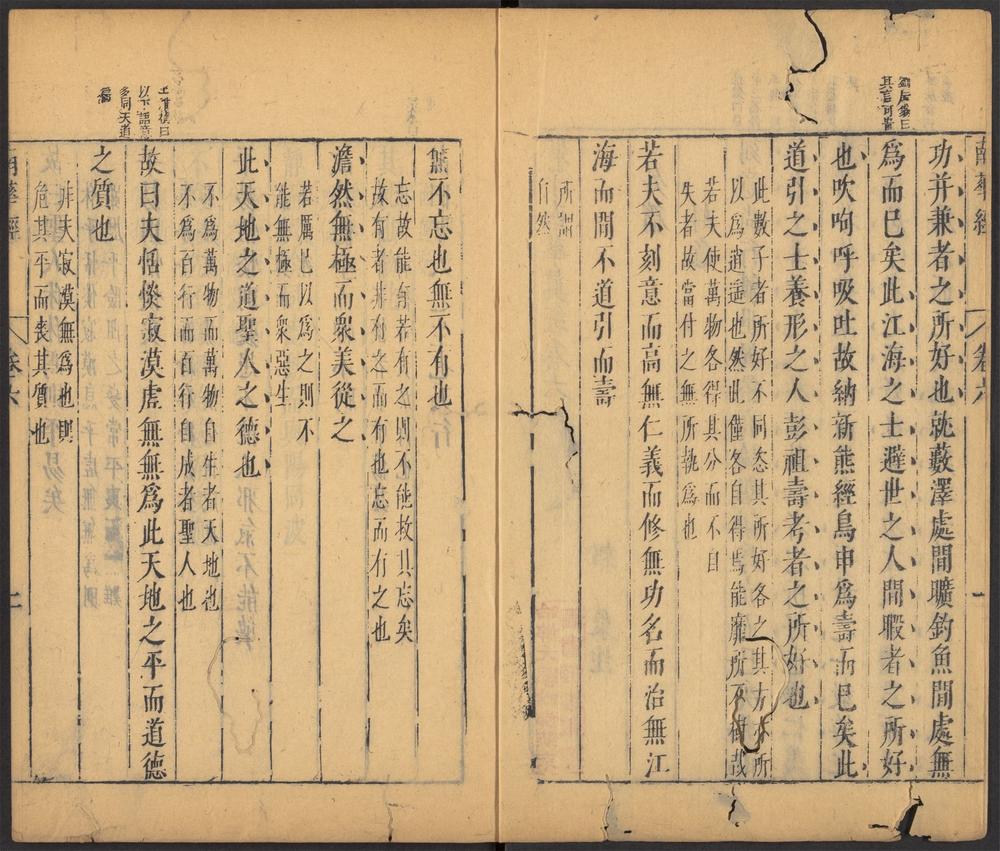 南華經 卷六 一
其言可喜
功并兼者之所好也就藪澤處閒曠釣魚閒處無
為而已矣此江海之士避世之人閒暇者之所好
也吹呴呼吸吐故納新熊經鳥申為壽而已矣此
道引之士養形之人彭祖壽考者之所好也
此數子者所好不同恣其所好各之其方亦所
以為逍遥也然此僅各自得焉能靡所不樹哉
若夫使萬物各得其分而不自
失者故當付之無所執為也
若夫不刻意而高無仁義而修無功名而治無江
海而閒不道引而壽
所謂
自然
無不忘也無不有也
忘故能有若有之則不能救其忘矣
故有者非有之而有也忘而有之也
澹然無極而衆美從之
若厲已以為之則不
能無極而衆惡生
此天地之道聖人之德也
不為萬物而萬物自生者天地也
不為百行而百行自成者聖人也
以下語意
多同天道
篇
故曰夫恬惔寂漠虛無無為此天地之平而道德
之質也
非夫寂漠無為也則
危其平而喪其質也
南華經 卷六 二